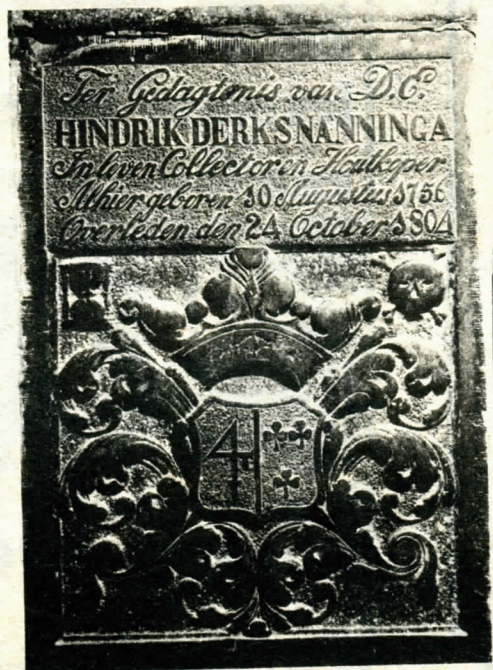 Ter Gedagtenis van D.E.
HINDRIK DERKS NANNINGA
In leven Collector en Houtkoper
Alhier geboren 10 Augustus 1756
Overleden den 24 October 1804
4